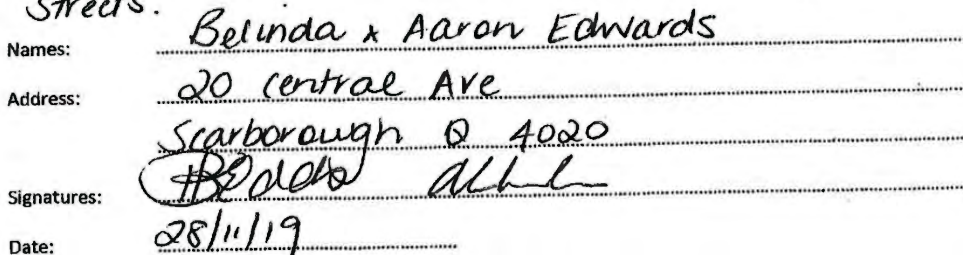 Streets.
Names: Belinda & Aaron Edwards
Address: 20 Central Ave
Scarborough Q 4020
Signatures:
Date: 28/11/19